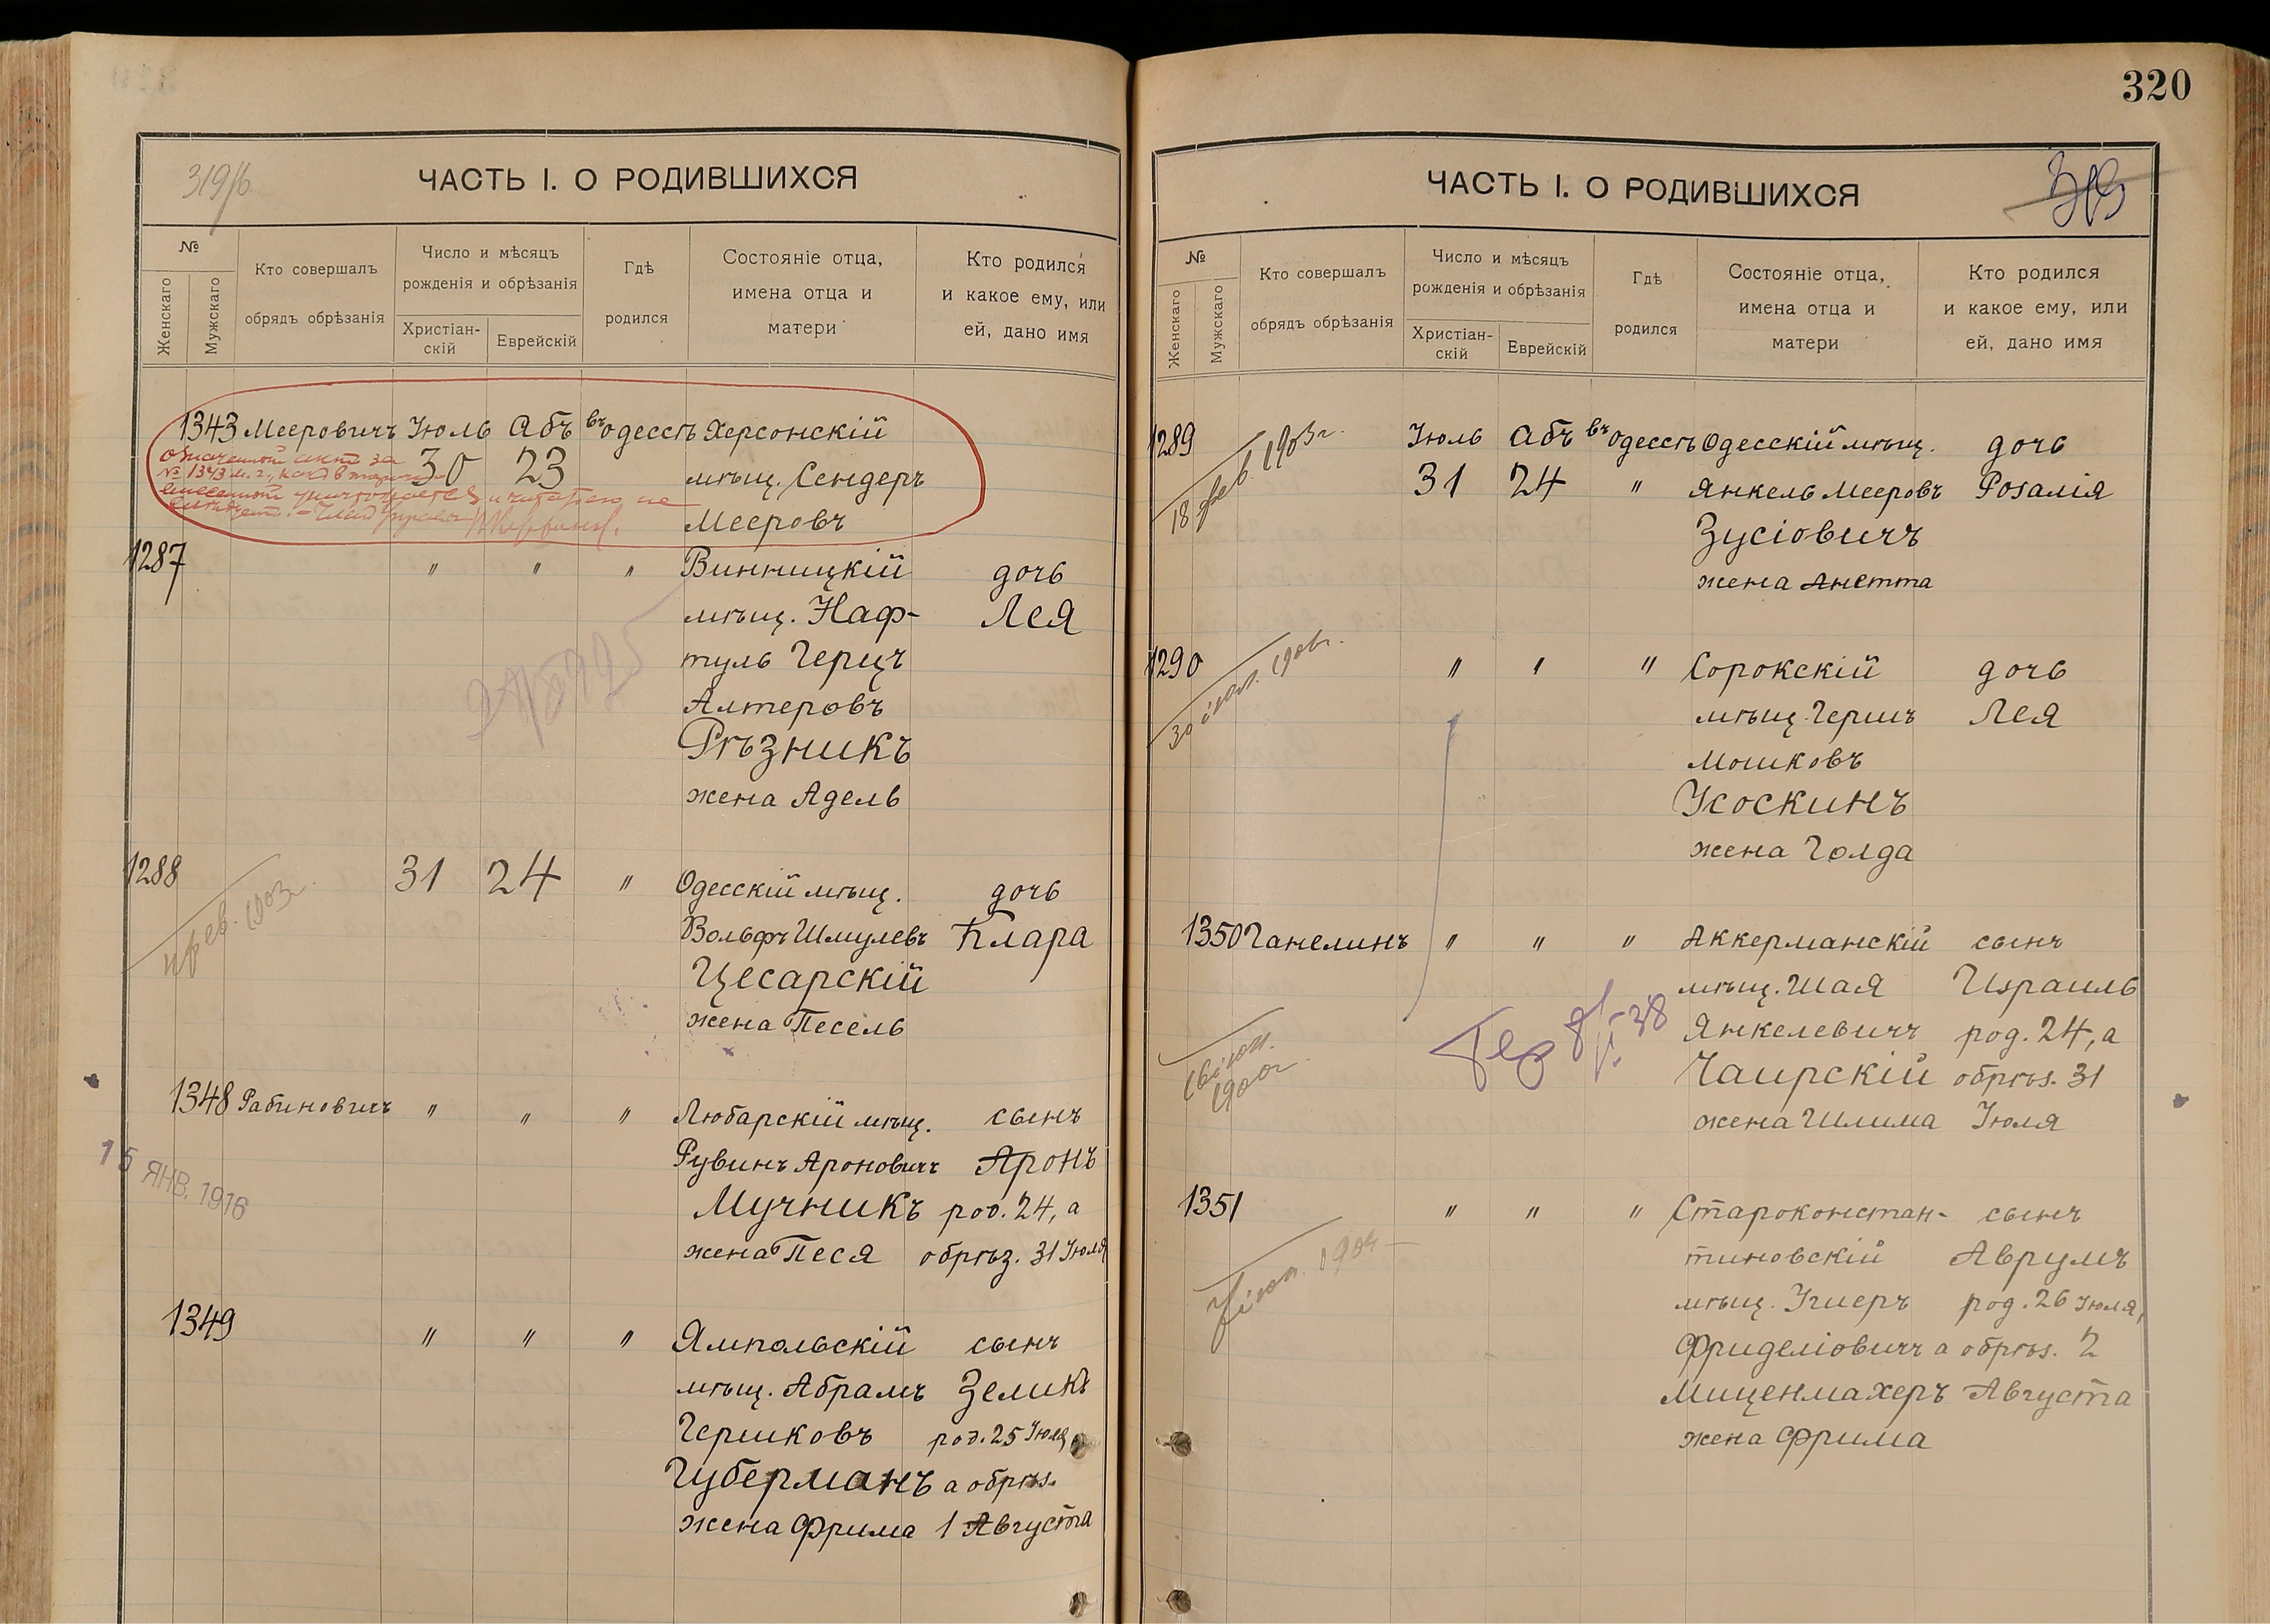 319/б
ЧАСТЬ I. О РОДИВШИХСЯ
№
Женскаго
Мужскаго
Кто совершалъ
обрядъ обрѣзанія
Число и мѣсяцъ
рожденія и обрѣзанія
Христіан-
скій
Еврейскій
Гдѣ
родился
Состояніе отца,
имена отца и
матери
Кто родился
и какое ему, или
ей, дано имя
1343 Мееровичъ Іюль Абъ въ Одессѣ Херсонскій
30 23 мѣщ. Сендеръ
Мееровъ
означенный актъ за
№ 1343
1287 " " " Винницкій дочь
мѣщ. Наф- Лея
туль Герцъ
Алтеровъ
Рѣзникъ
жена Адель
1288 31 24 " Одесскій мѣщ. дочь
Вольфъ Шмулевъ Клара
Цесарскій
жена Песель
1903
1348 Рабиновичъ " " " Любарскій мѣщ. сынъ
Рувинъ Ароновичъ Аронъ
Мучникъ род. 24, а
жена Песя обрѣз. 31 Іюля
15 ЯНВ. 1916
1349 " " " Ямпольскій сынъ
мѣщ. Абрамъ Зеликъ
Гершковъ род. 25 Іюля
Губерманъ а обрѣз.
жена Фрима 1 Августа
320
319
ЧАСТЬ I. О РОДИВШИХСЯ
№
Женскаго
Мужскаго
Кто совершалъ
обрядъ обрѣзанія
Число и мѣсяцъ
рожденія и обрѣзанія
Христіан-
скій
Еврейскій
Гдѣ
родился
Состояніе отца,
имена отца и
матери
Кто родился
и какое ему, или
ей, дано имя
1289 Іюль Абъ въ Одессѣ Одесскій мѣщ. дочь
31 24 " Янкель Мееровъ Розалія
Зусіовичъ
жена Анетта
18 фев. 1903 г.
1290 " " " Сорокскій дочь
мѣщ. Гершъ Лея
Мошковъ
Усоскинъ
жена Голда
1350 Ганелинъ " " " Аккерманскій сынъ
мѣщ. Шая Израиль
Янкелевичъ род. 24, а
Чаирскій обрѣз. 31
жена Шлима Іюля
1351 " " " Староконстан- сынъ
тиновскій Аврумъ
мѣщ. Ушеръ род. 26 Іюля,
Фриделіовичъ а обрѣз. 2
Миценмахеръ Августа
жена Фрима